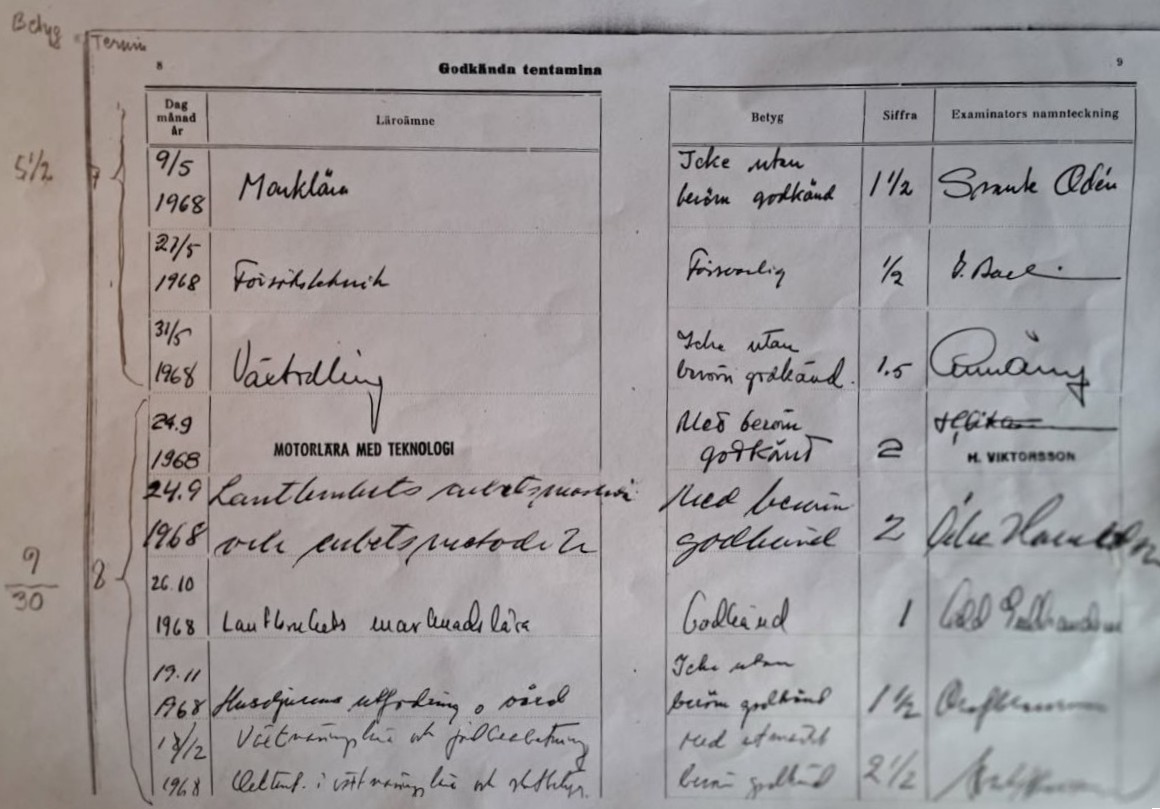 Betyg
Termin
8
Godkända tentamina
9
Dag månad år
Läroämne
Betyg
Siffra
Examinators namnteckning
5 1/2
7
9/5
1968
Marklära
Icke utan
beröm godkänd
1 1/2
Svante Odén
27/5
1968
Försöksteknik
Försvarlig
1/2
31/5
1968
Växtodling
Icke utan
beröm godkänd.
1.5
24.9
1968
MOTORLÄRA MED TEKNOLOGI
Med beröm
godkänd
2
H. VIKTORSSON
9
30
8
24.9
1968
Lantbrukets arbetsmaskiner
och arbetsmetoder
Med beröm
godkänd
2
26.10
1968
Lantbrukets marknadslära
Godkänd
1
19.11
1968
Husdjurens utfodring o vård
Icke utan
beröm godkänd
1 1/2
18/12
1968
Växtnäringslära och jordbearbetning
i växtnäringslära och
Med utmärkt
beröm godkänd
2 1/2